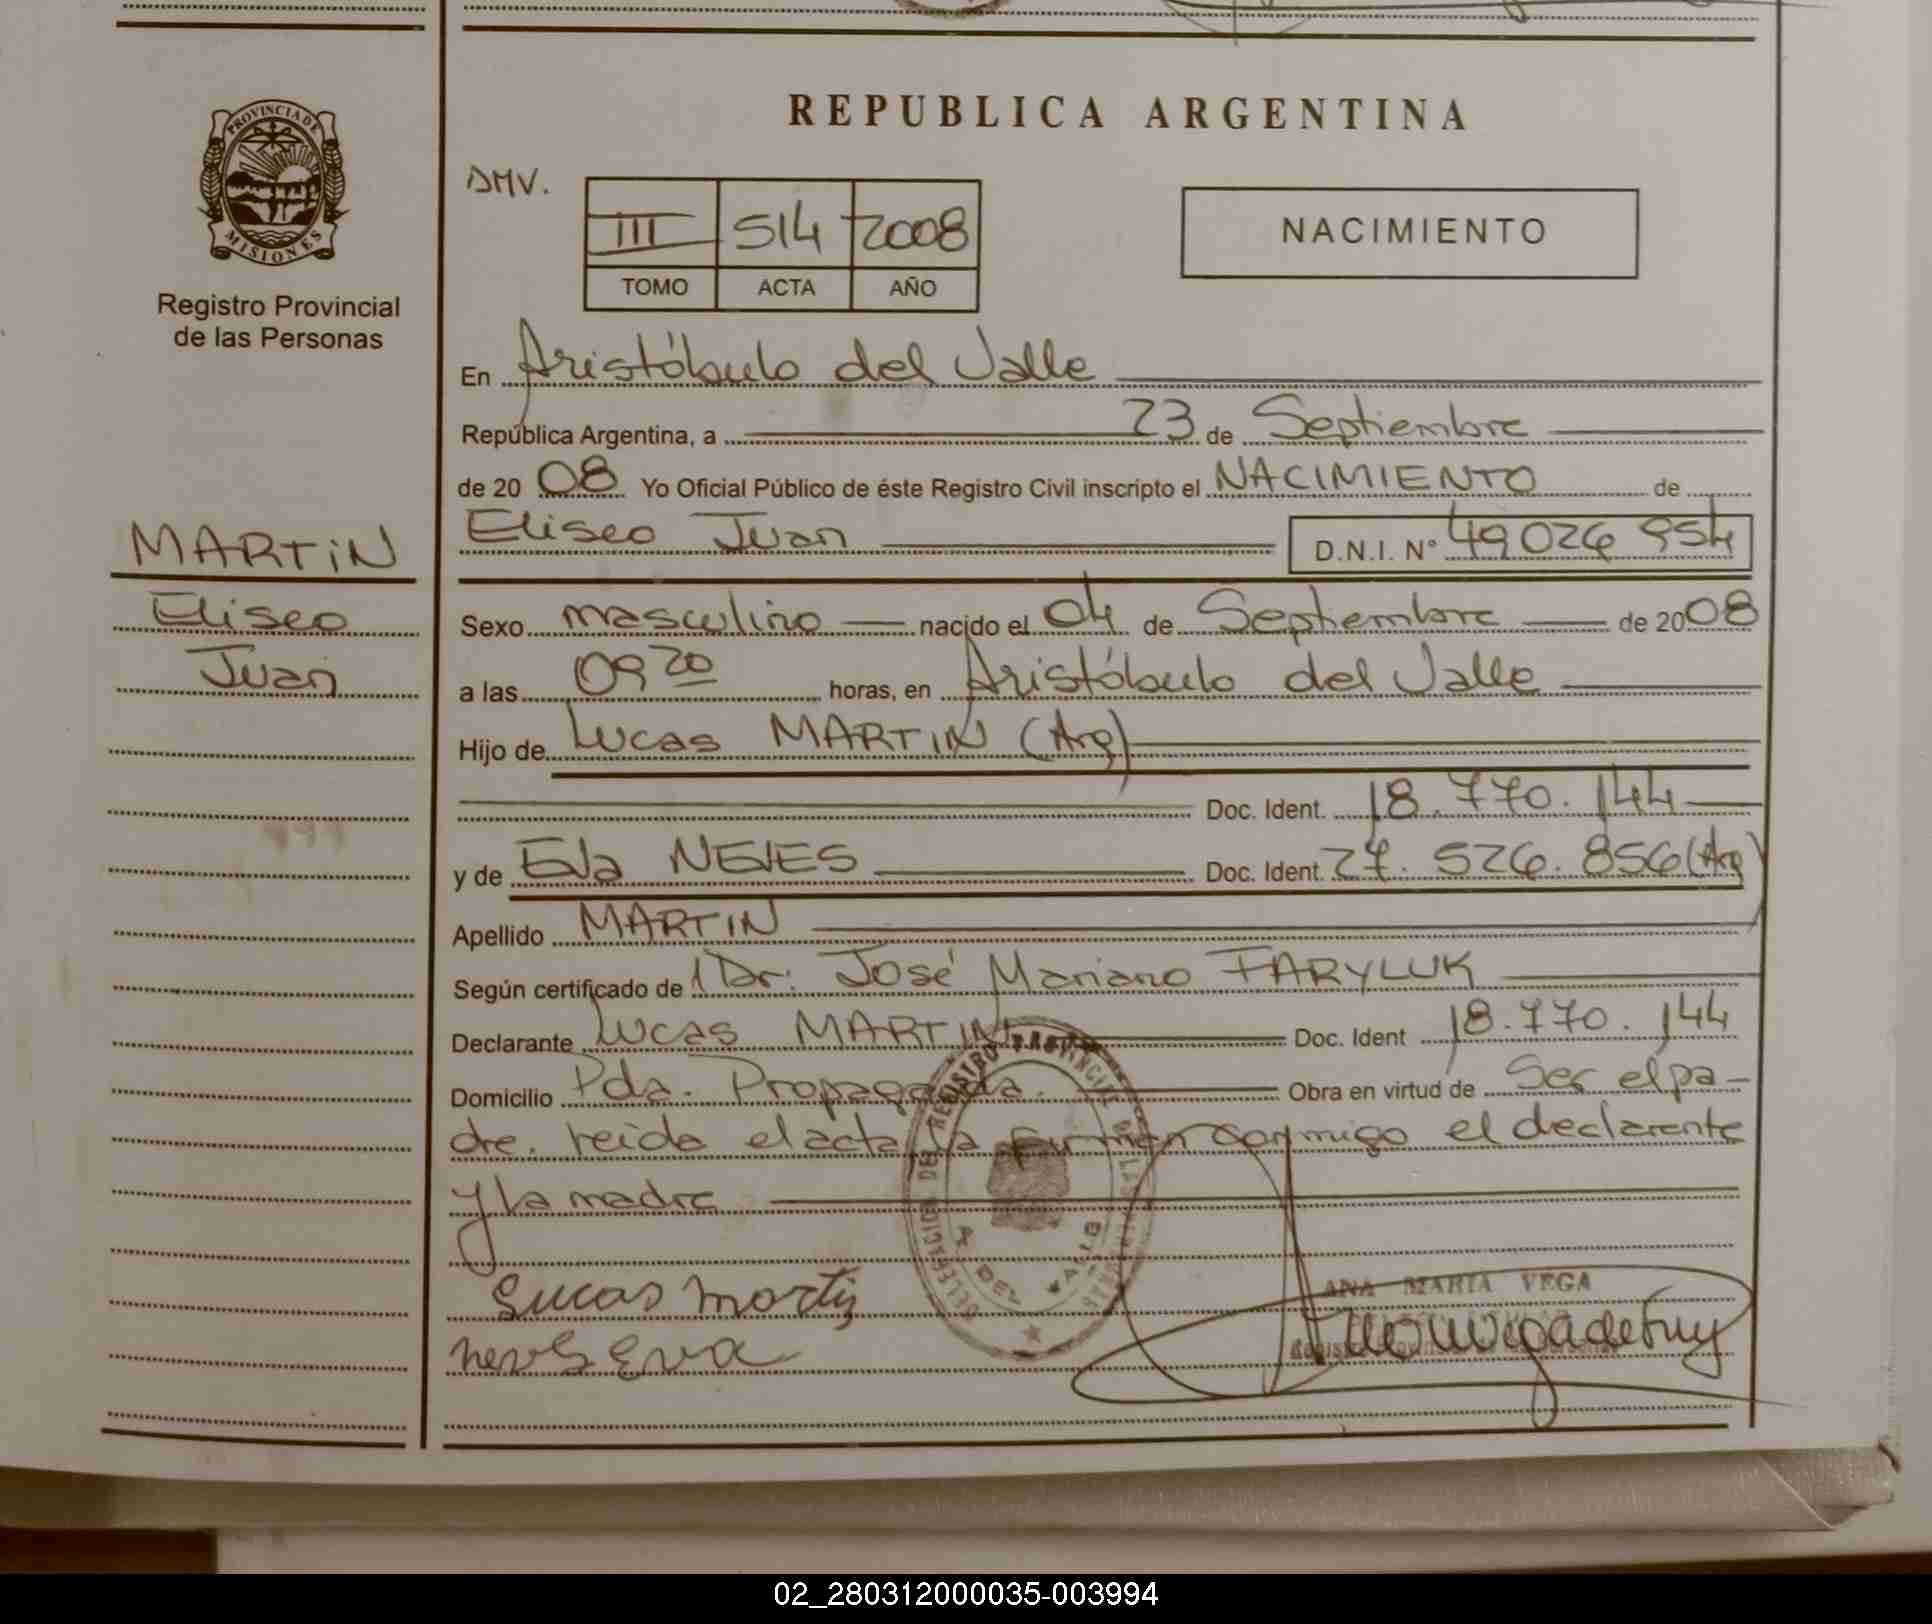 REPUBLICA ARGENTINA
PROVINCIA DE
MISIONES
Registro Provincial
de las Personas
DMV.
III 514 2008
TOMO ACTA AÑO
NACIMIENTO
En Aristóbulo del Valle
República Argentina, a 23 de Septiembre
de 20 08 Yo Oficial Público de éste Registro Civil inscripto el NACIMIENTO de
Eliseo Juan D.N.I. Nº 49026954
MARTIN
Eliseo
Juan
Sexo masculino nacido el 04 de Septiembre de 2008
a las 09 20 horas, en Aristóbulo del Valle
Hijo de Lucas MARTIN (Arg)
Doc. Ident. 18.770.144
y de Eva NEVES Doc. Ident. 27.526.856 (Arg)
Apellido MARTIN
Según certificado de Dr: José Mariano FARYLUK
Declarante Lucas MARTIN Doc. Ident 18.770.144
Domicilio Pda. Propaganda. Obra en virtud de Ser el pa-
dre. leida el acta la firman conmigo el declarante
y la madre
Lucas Martin
neves Eva
DELEGACION DEL REGISTRO PROVINCIAL DE LAS PERSONAS
A. DEL VALLE
ANA MARIA VEGA
02_280312000035-003994